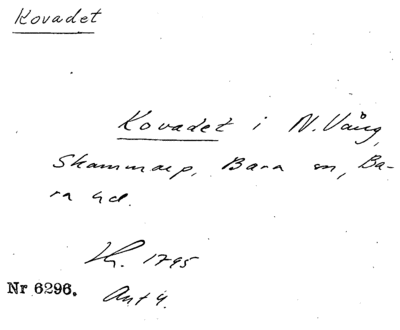 Kovadet
Kovadet i N. Vång,
Skammarp, Bara sn, Ba-
ra hd.
Lh. 1795
Nr 6296. Ant 4.